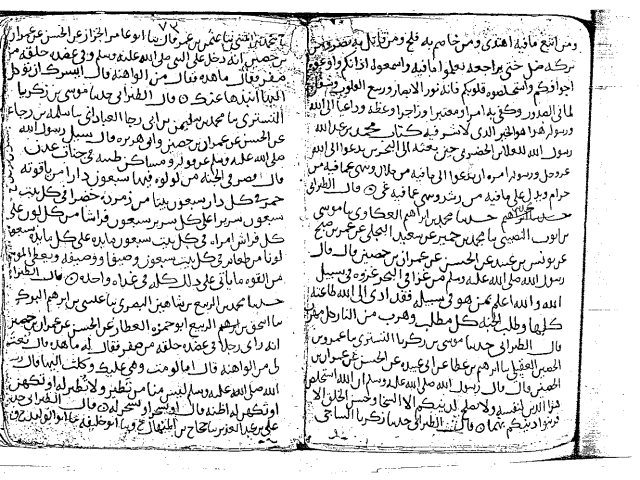 ومن اتبع ما فيه اهتدى ومن خاصم به فلح ومن قاتل به نصر ومن
تركه ضل حتى يراجعه تعلموا ما فيه واسمعوه اذانكم واوعوه
اجوافكم واستحفظوه قلوبكم فانه نور الابصار وربيع القلوب وشفا
لما في الصدور وكفى به امرا ومعتبرا وزاجرا وعظه وداعيا الى الله
ورسوله هذا هو الخير الذي لا شر فيه كتاب محمد بن عبد الله
رسول الله للعلاء بن الحضرمي حين بعثه الى البحرين يدعوا الى الله
عز وجل ورسوله امره ان يدعوا الى ما فيه من حلال وينهى عما فيه من
حرام ويدل على ما فيه من رشد وينهى عما فيه من غي قال الطبراني
حدثنا محمد بن ابراهيم العكاوي نا موسى
بن ايوب النصيبي نا محمد بن حمير عن سعيد البجلي عن عمر بن صبح
عن يونس بن عبيد عن الحسن عن عمران بن حصين قال قال
رسول الله صلى الله عليه وسلم من غزا في البحر غزوه في سبيل
الله والله اعلم بمن هو في سبيله فقد ادى الى الله طاعته
كلها وطلب الجنه كل مطلب وهرب من النار كل مهرب
قال الطبراني حدثنا موسى بن زكريا التستري نا عمرو بن
الحصين العقيلي نا ابراهيم بن عطا عن ابي عبيده عن الحسن عن عمران بن
الحصين قال قال رسول الله صلى الله عليه وسلم ان الله استخلص
هذا الدين لنفسه ولا يصلح لدينكم الا السخا وحسن الخلق الا
فزينوا دينكم بهما قال الطبراني حدثنا زكريا الساجي
٧٣
محمد بن المثنى نا عثمن بن عمر قال نا ابو عامر الخزاز عن الحسن عن عمران
بن حصين انه دخل على النبي صلى الله عليه وسلم وفي عضده حلقه من
صفر فقال ما هذه فقال من الواهنه قال ايسرك ان توكل
اليها انبذها عنك قال الطبراني حدثنا موسى بن زكريا
التستري نا محمد بن سليمن بن ابي رجا العباداني نا سلمه بن رجاء
عن الحسن عن عمران بن حصين وابي هريره قال سئل رسول الله
صلى الله عليه وسلم عن قوله ومساكن طيبه في جنات عدن
قال قصر في الجنه من لولوه فيها سبعون دارا من ياقوته
حمرا في كل دار سبعون بيتا من زمرده خضرا في كل بيت
سبعون سريرا على كل سرير سبعون فراشا من كل لون على
كل فراش امراه في كل بيت سبعون مايده على كل مايده سبعون
لونا من طعام في كل بيت سبعون وصيفا ووصيفه ويعطى المومن
من القوه ما ياتي على ذلك كله في غداه واحده قال الطبراني
حدثنا محمد بن الربيع بن شاهين البصري نا عيسى بن ابرهيم البركي
نا اسحق بن الربيع ابو حمزه العطار عن الحسن عن عمران بن حصين
انه راى رجلا في عضده حلقه من صفر فقال له ما هذه قال نعتت
لي من الواهنه قال اما لو مت وهي عليك وكلت اليها قال رسول
الله صلى الله عليه وسلم ليس منا من تطير ولا تطير له او تكهن
او تكهن له اظنه قال او سحر او سحر له قال الطبراني حدثنا
علي بن عبد العزيز نا حجاج بن المنهال ح ونا ابو خليفه نا ابو الوليد ح